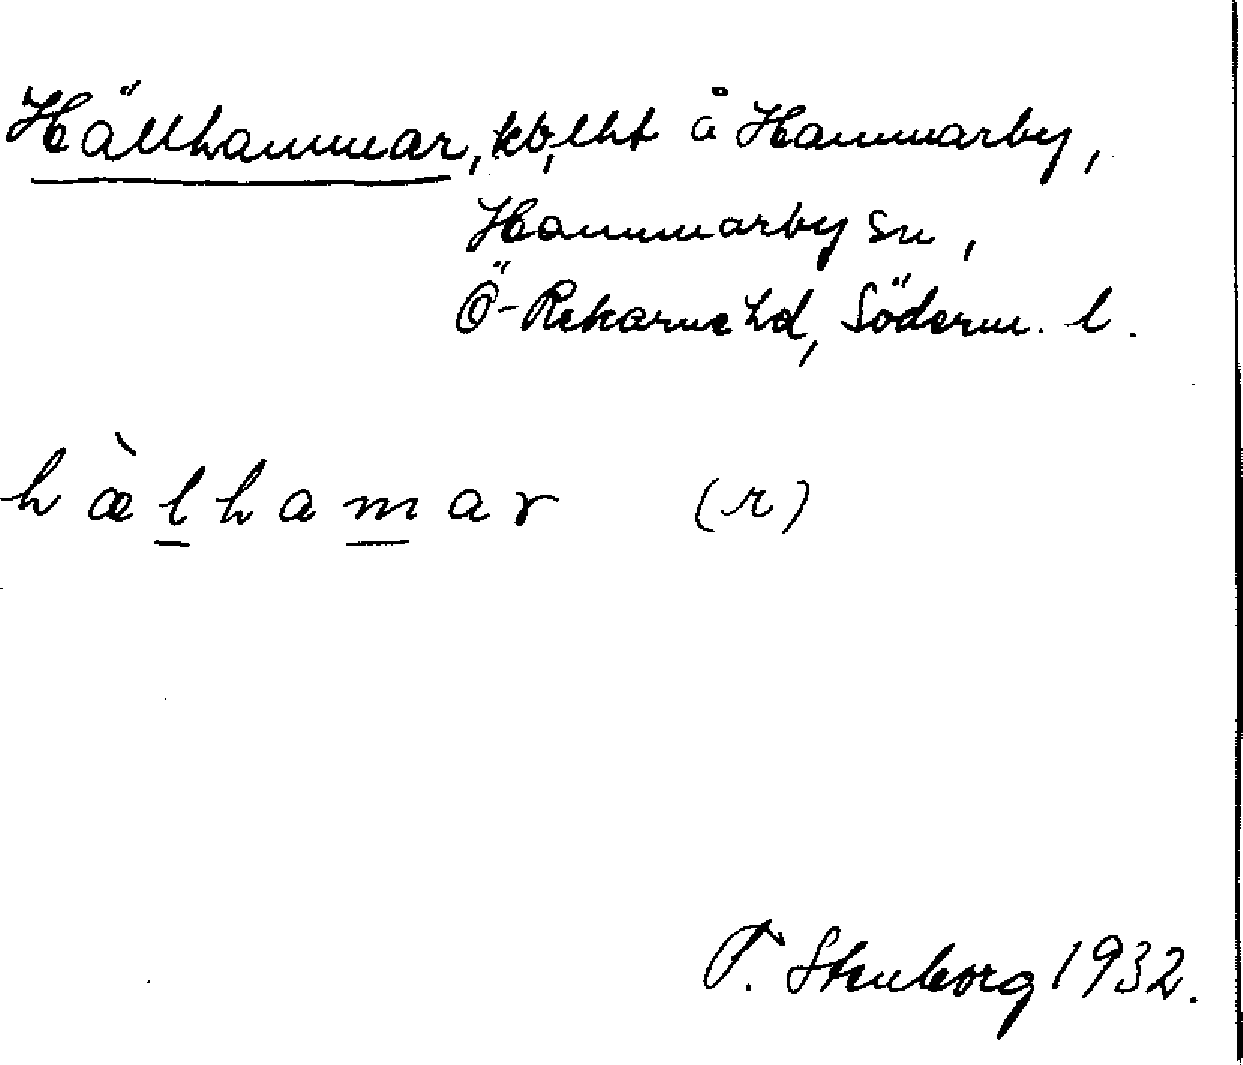 Hällhammar, kb, lht å Hammarby,
Hammarby sn,
Ö-Rekarne hd, Söderm. l.
hæ̀lhamar (r)
T. Stenborg 1932.